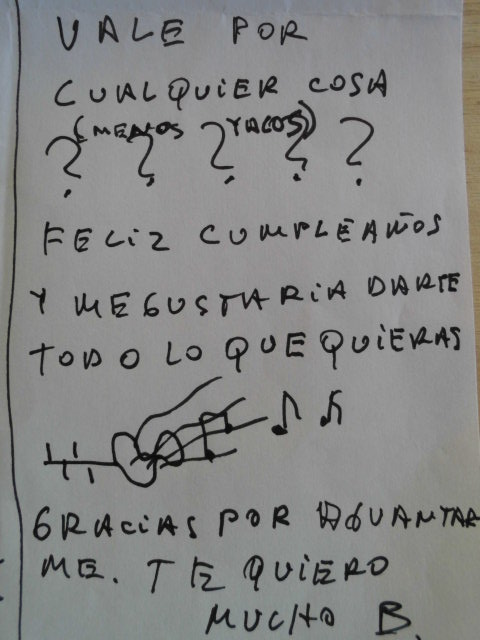 VALE POR
CUALQUIER COSA
(MENOS YACOS)
? ? ? ? ?
FELIZ CUMPLEAÑOS
Y ME GUSTARIA DARTE
TODO LO QUE QUIERAS
GRACIAS POR AGUANTAR
ME. TE QUIERO
MUCHO B.